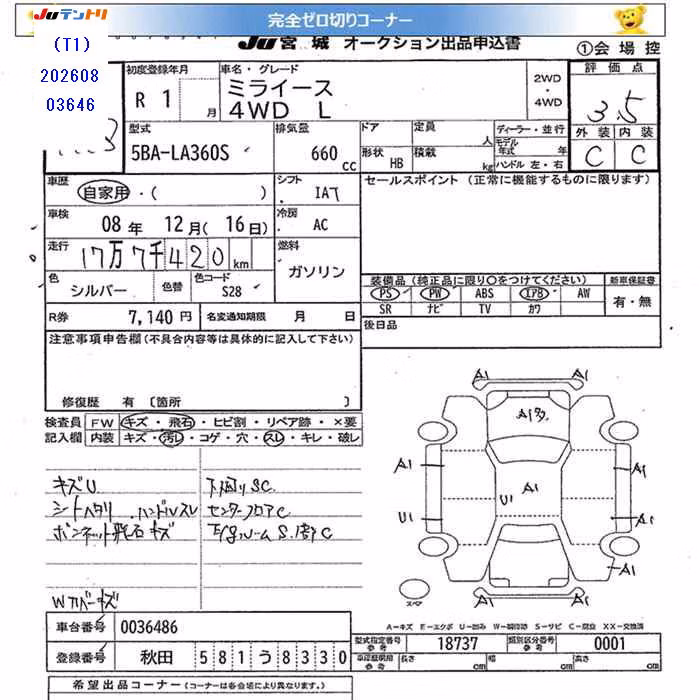 JUテントリ
完全ゼロ切りコーナー
(T1)
202608
03646
JU宮城 オークション出品申込書
①会場控
初度登録年月
R 1 月
車名・グレード
ミライース
4WD L
2WD
・
4WD
評価点
3.5
外装 内装
C C
型式
5BA-LA360S
排気量
660 cc
ドア
定員 人
形状 HB
積載 kg
ディーラー・並行
モデル年式 年
ハンドル 左・右
車歴
自家用・( )
シフト
IAT
セールスポイント (正常に機能するものに限ります)
車検
08年 12月(16日)
冷房
AC
走行
17万7千420km
燃料
ガソリン
色
シルバー
色替
色コード
S28
装備品 (純正品に限り○をつけてください)
新車保証書
PS PW ABS エアB AW
SR ナビ TV カワ
有・無
R券 7,140円
名変通知期限 月 日
後日品
注意事項申告欄(不具合内容等は具体的に記入して下さい)
修復歴 有 〔箇所 〕
検査員記入欄
FW キズ・飛石・ヒビ割・リペア跡・×要
内装 キズ・汚し・コゲ・穴・スレ・キレ・破レ
キズU
シートヘタリ.ハンドルスレ
ボンネット飛石キズ
下回りSC
センターフロアC
A1
A1
A1
A1
A1
A1
U1
A1
U1
A1
A1
A1
A1
スペア
A-キズ E-エクボ U-凹み W-補修跡 S-サビ C-腐食 XX-交換済
車台番号 0036486
登録番号 秋田 581う8330
型式指定番号 18737
類別区分番号 0001
車庫証明用参考
長さ cm
幅 cm
高さ cm
希望出品コーナー (コーナーは各会場により異なります。)